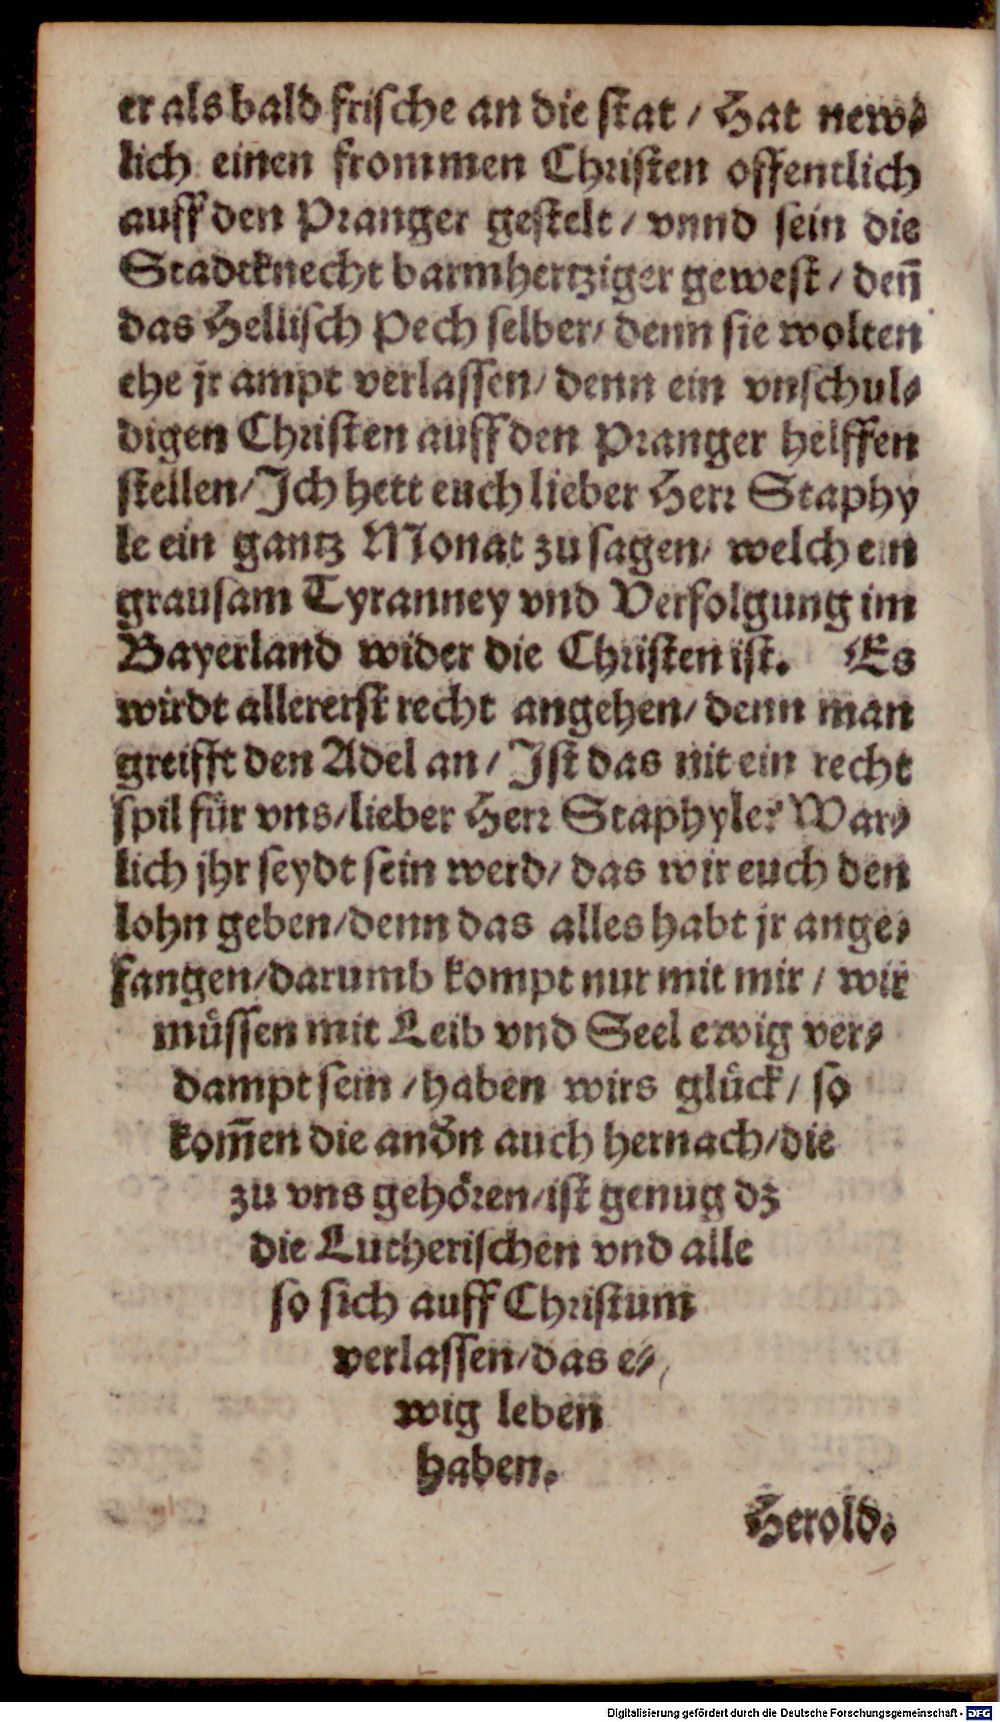 er als bald frische an die stat / Hat new⸗
lich einen frommen Christen offentlich
auff den Pranger gestelt / vnnd sein die
Stadtknecht barmhertziger gewest / den̄
das Hellisch Pech selber / denn sie wolten
ehe jr ampt verlassen / denn ein vnschul⸗
digen Christen auff den Pranger helffen
stellen / Ich hett euch lieber Herr Staphy
le ein gantz Monat zu sagen / welch ein
grausam Tyranney vnd Verfolgung im
Bayerland wider die Christen ist. Es
wirdt allererst recht angehen / denn man
greifft den Adel an / Ist das nit ein recht
spil für vns / lieber Herr Staphyle? War⸗
lich jhr seydt sein werd / das wir euch den
lohn geben / denn das alles habt jr ange⸗
fangen / darumb kompt nur mit mir / wir
müssen mit Leib vnd Seel ewig ver⸗
dampt sein / haben wirs glück / so
kom̄en die andn auch hernach / die
zu vns gehören / ist genug dz
die Lutherischen vnd alle
so sich auff Christum
verlassen / das e⸗
wig leben
haben.
Herold.
Digitalisierung gefördert durch die Deutsche Forschungsgemeinschaft - DFG